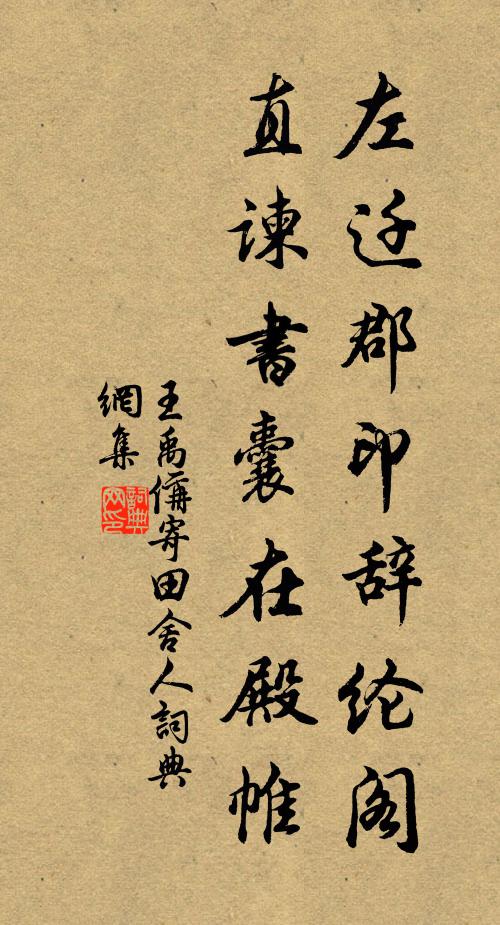 左迁郡印辞纶阁
直谏書囊在殿帷
王禹偁寄田舍人詞典
網集
詞典网印